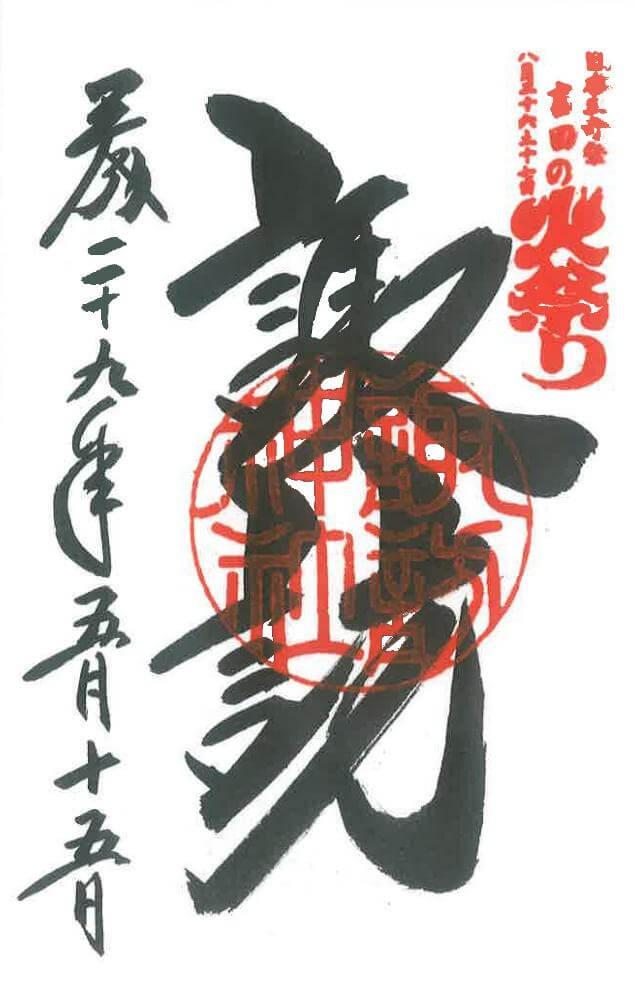 日本三奇祭
吉田の火祭り
八月二十六二十七日
諏訪
諏訪
神社
平成二十九年五月十五日